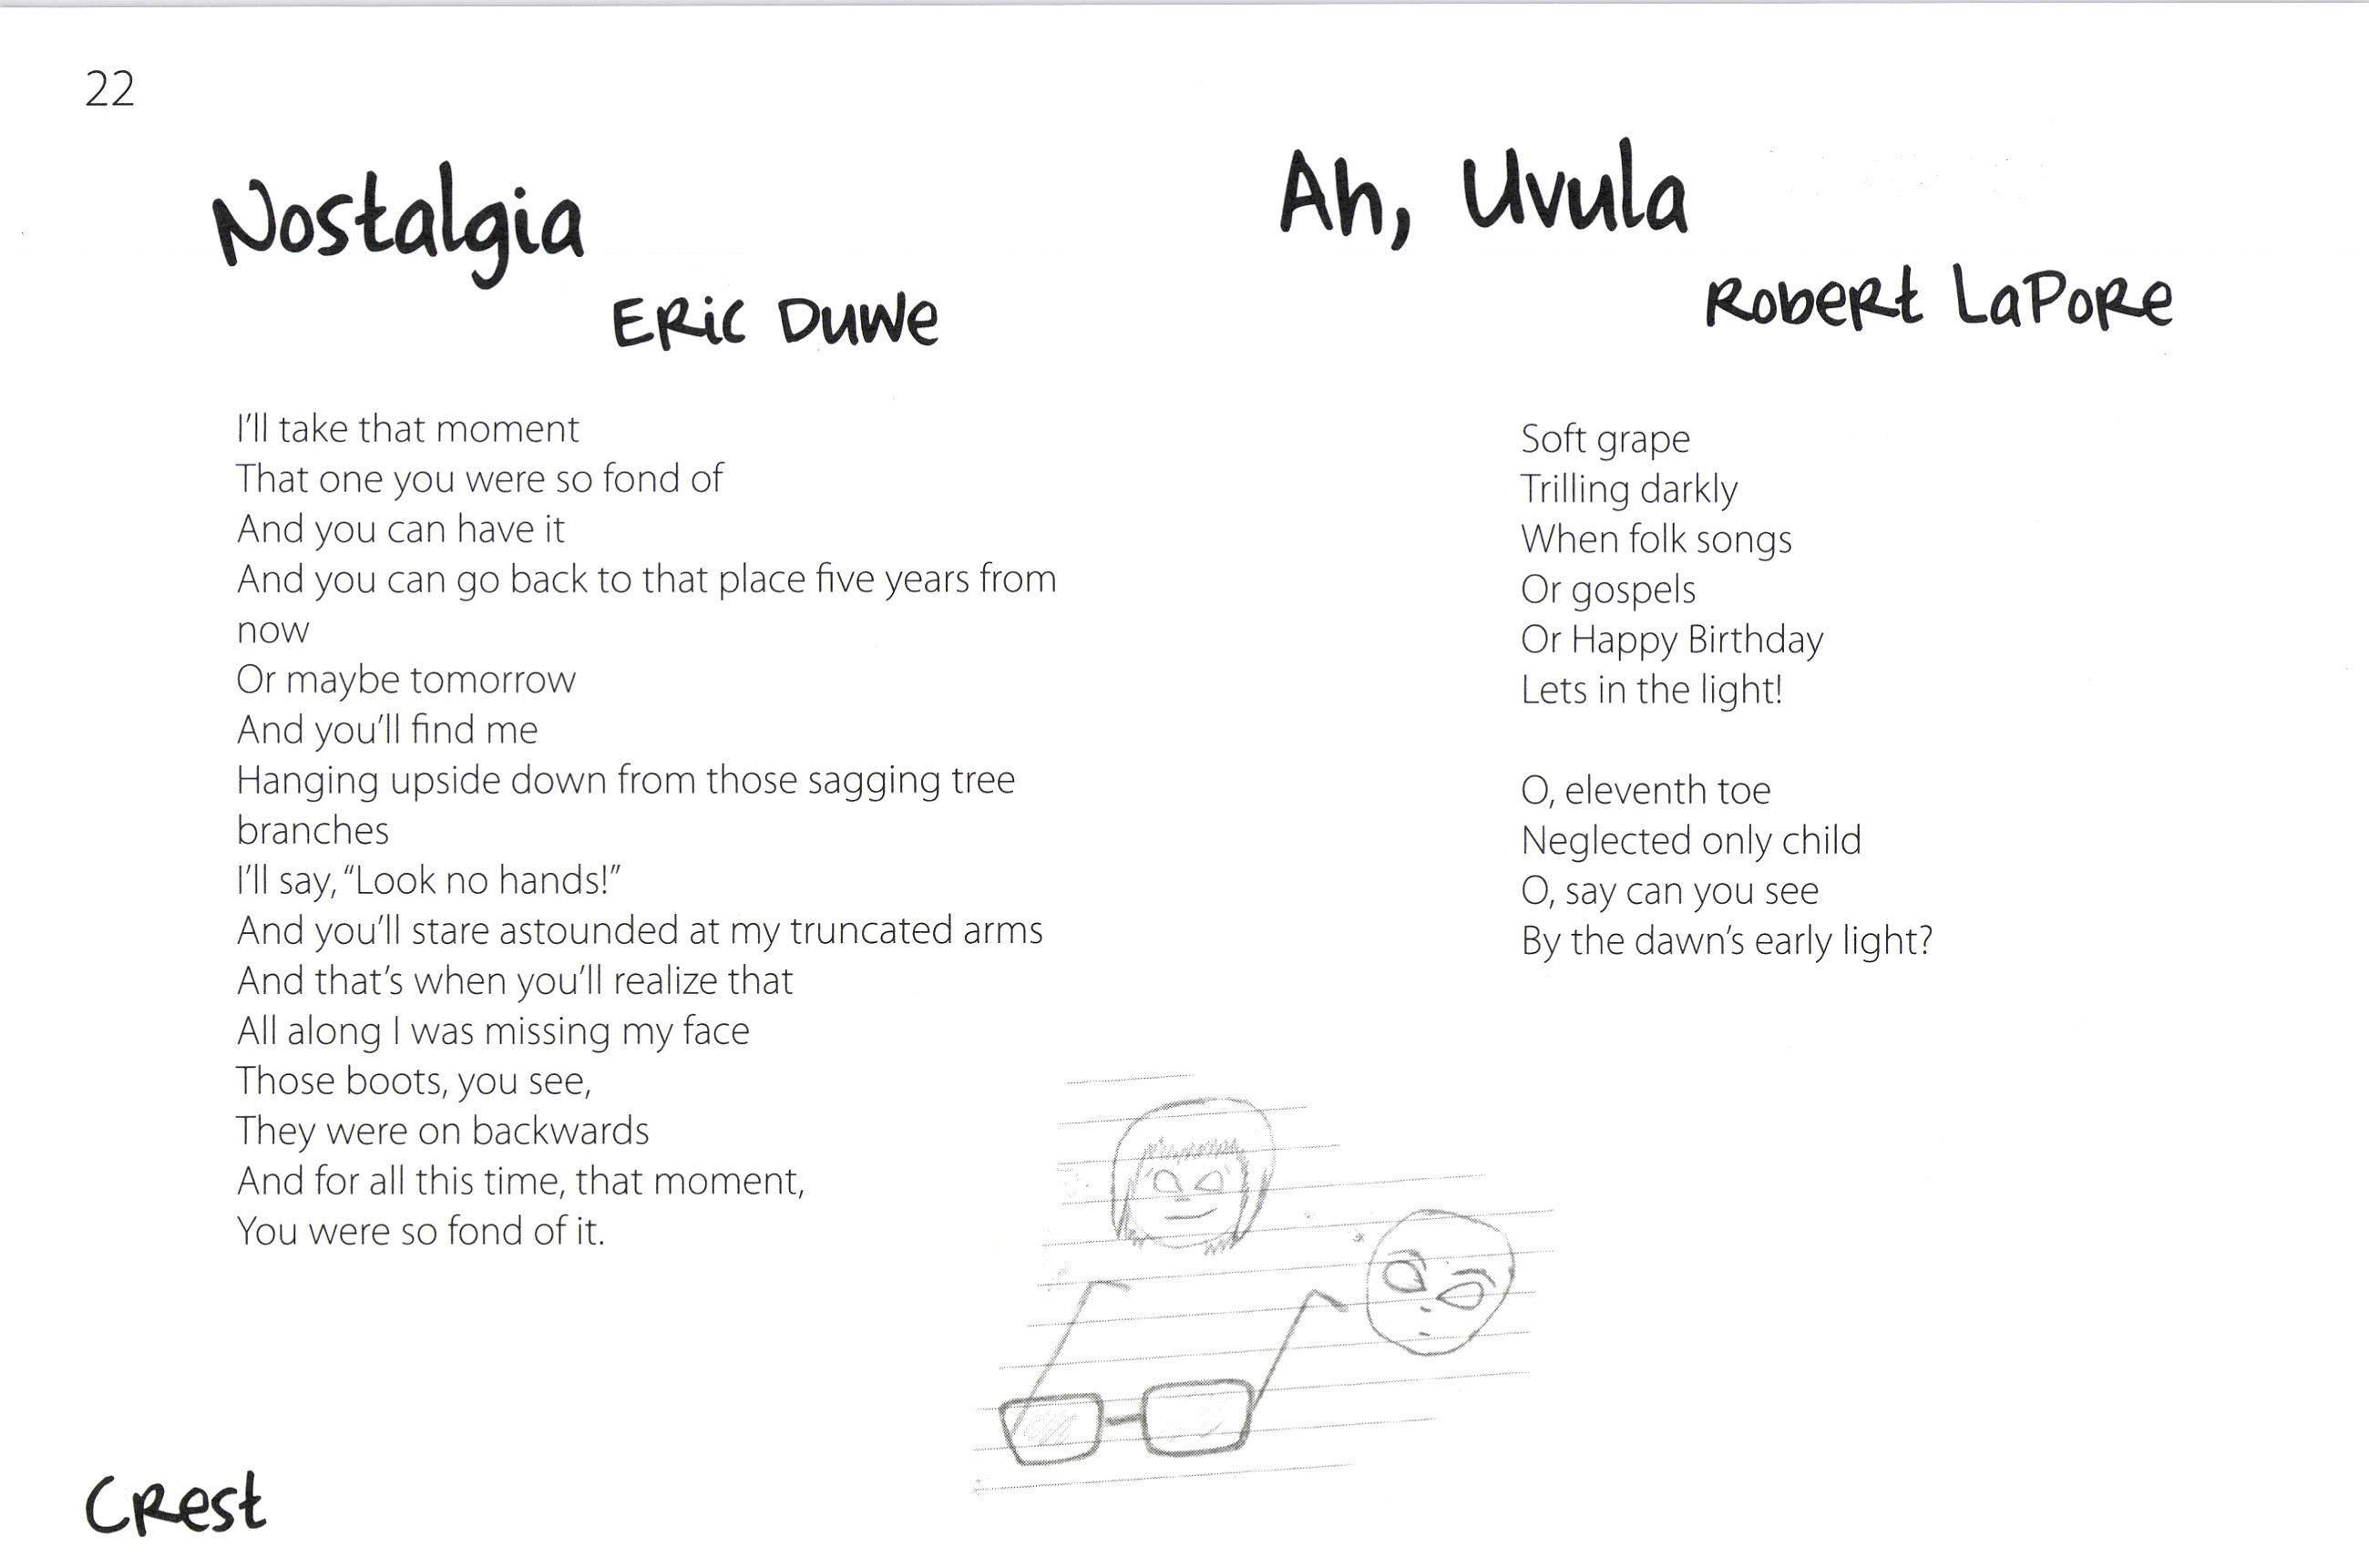 22
Nostalgia
Eric Duwe
I'll take that moment
That one you were so fond of
And you can have it
And you can go back to that place five years from
now
Or maybe tomorrow
And you'll find me
Hanging upside down from those sagging tree
branches
I'll say, “Look no hands!”
And you'll stare astounded at my truncated arms
And that's when you'll realize that
All along I was missing my face
Those boots, you see,
They were on backwards
And for all this time, that moment,
You were so fond of it.
Ah, Uvula
Robert LaPore
Soft grape
Trilling darkly
When folk songs
Or gospels
Or Happy Birthday
Lets in the light!
O, eleventh toe
Neglected only child
O, say can you see
By the dawn's early light?
Crest